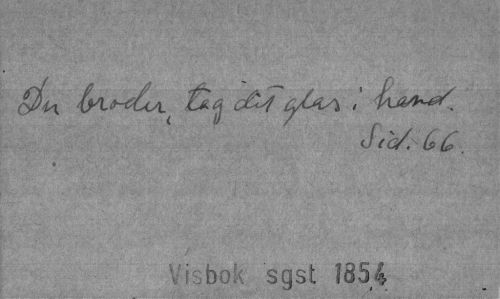 Du broder, tag dit glas i hand.
Sid. 66.
Visbok sgst 1854